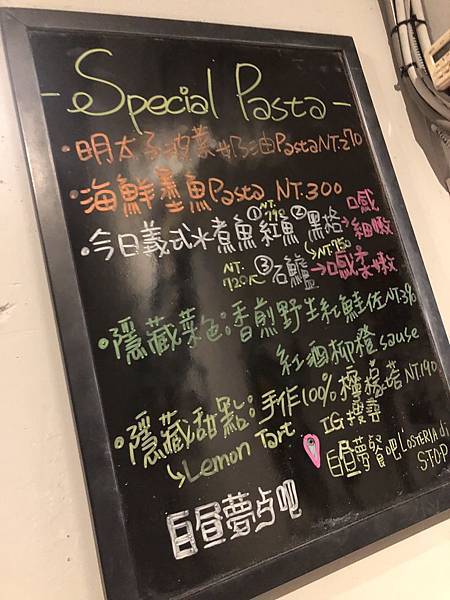 - Special Pasta -
• 明太子波菜奶油Pasta NT.270
• 海鮮墨魚Pasta NT.300
• 今日義式水煮魚 ①紅魚 ②黑格 → 口感細嫩
NT.790
NT.750
NT.720元 ③石鱸 → 口感柔嫩
• 隱藏菜色:香煎野生紅鮭佐
紅酒柳橙sause
• 隱藏甜點:手作100%檸檬塔 NT.190
Lemon Tart
IG搜尋
白昼夢餐吧 L'OSTERIA di STOP
白昼夢点吧